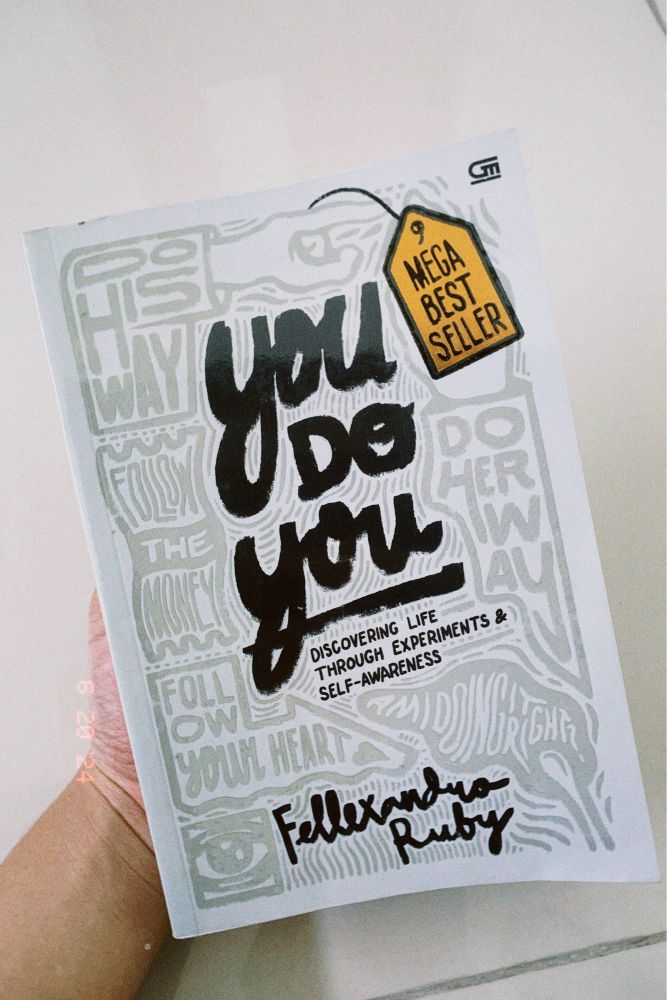 MEGA
BEST
SELLER
DO
HIS
WAY
YOU
DO
YOU
FOLLOW
THE
MONEY
DO
HER
WAY
DISCOVERING LIFE
THROUGH EXPERIMENTS &
SELF-AWARENESS
FOLL
OW
YOUR HEART
AM I DOING IT RIGHT?
Fellexandro
Ruby
6 20 '24